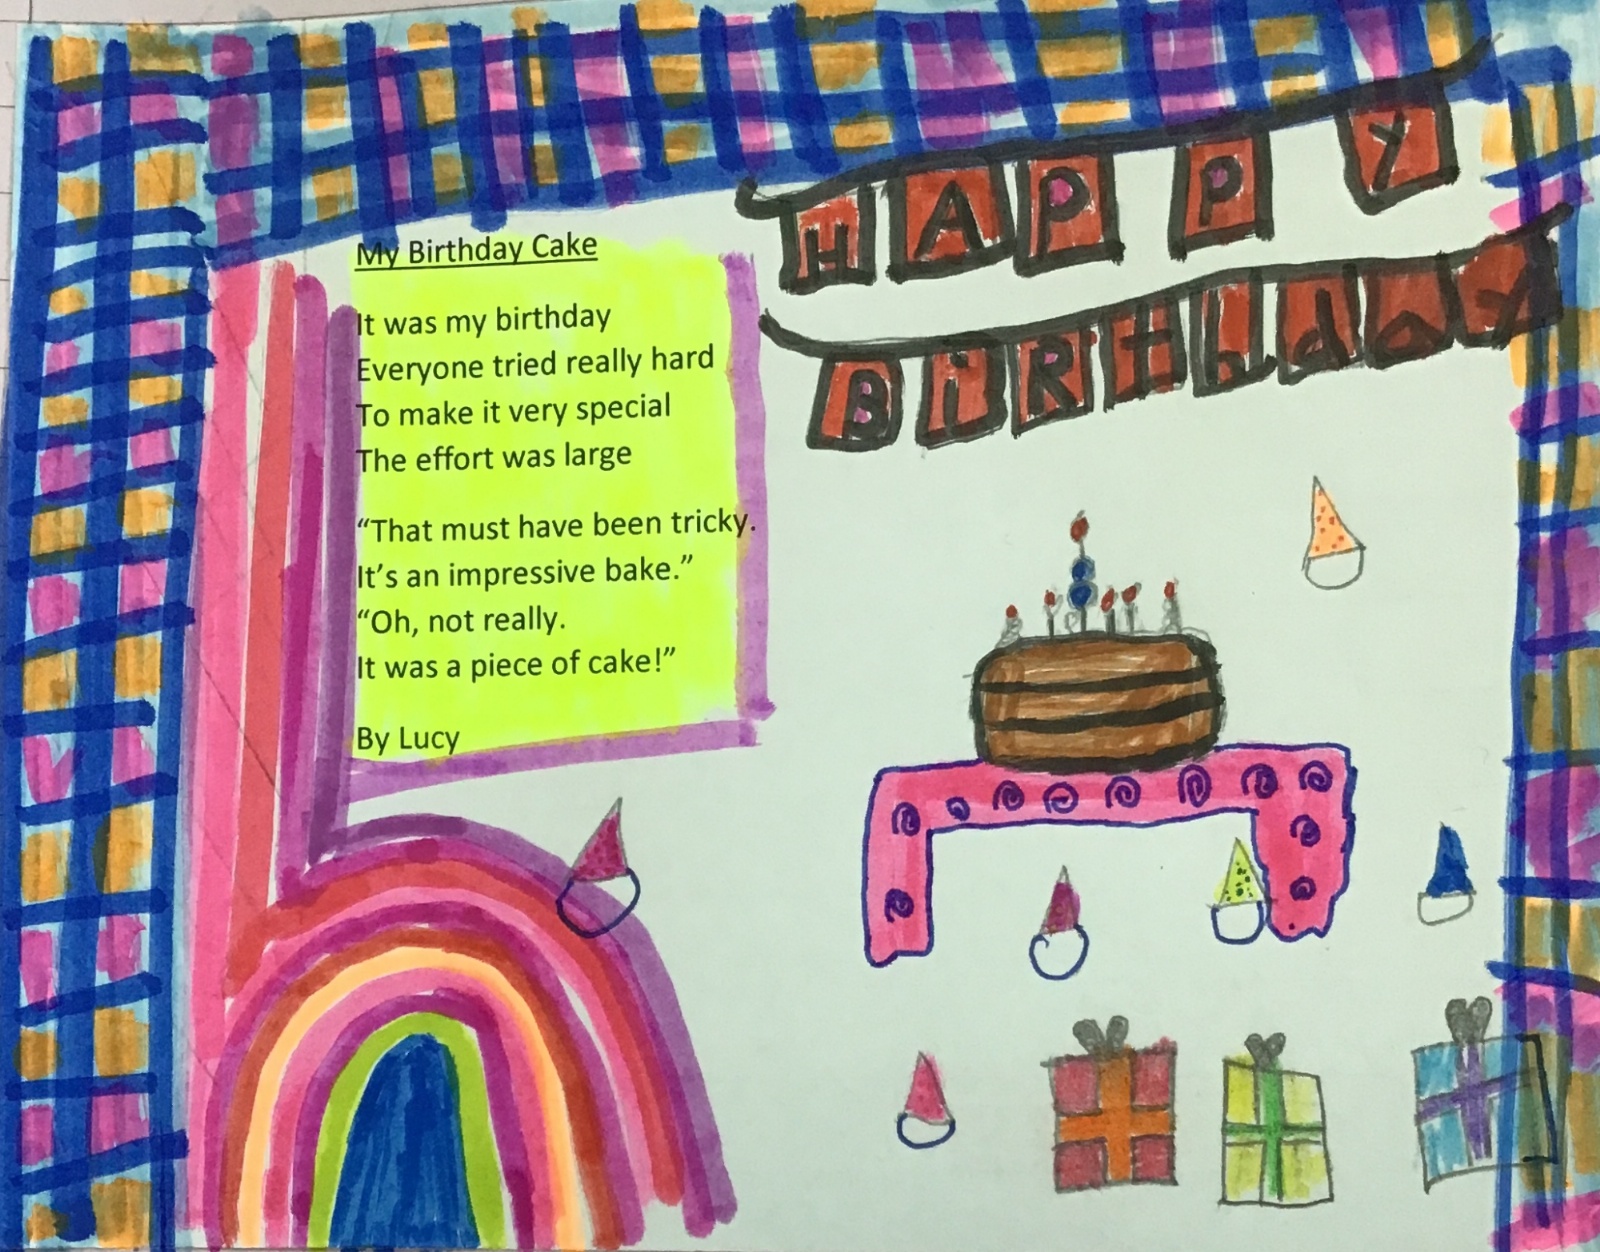 HAPPY
BiRthday
My Birthday Cake
It was my birthday
Everyone tried really hard
To make it very special
The effort was large
“That must have been tricky.
It’s an impressive bake.”
“Oh, not really.
It was a piece of cake!”
By Lucy